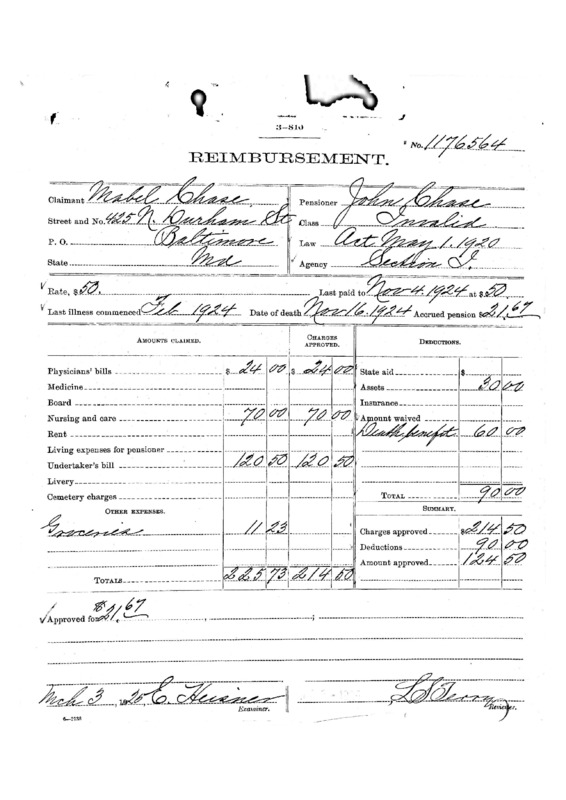 3—810
No. 1176564
REIMBURSEMENT.
Claimant Mabel Chase
Street and No. 425 N. Durham St
P. O. Baltimore
State Md
Pensioner John Chase
Class Invalid
Law Act May 1. 1920
Agency Section I.
Rate, $50. Last paid to Nov 4, 1924 at $50
Last illness commenced Feb 1924 Date of death Nov 16. 1924 Accrued pension $21.67
AMOUNTS CLAIMED. CHARGES APPROVED. DEDUCTIONS.
Physicians' bills $24 00 $24 00 State aid $
Medicine Assets 30 00
Board Insurance
Nursing and care 70 00 70 00 Amount waived
Rent Death benefit 60 00
Living expenses for pensioner
Undertaker's bill 120 50 120 50
Livery
Cemetery charges TOTAL 90 00
OTHER EXPENSES. SUMMARY.
Groceries 11 23 Charges approved $214 50
Deductions 90 00
Amount approved 124 50
TOTALS 225 73 214 50
Approved for $21.67
Mch 3, 1925 E. Heisner Examiner.
L S Terry Reviewer.